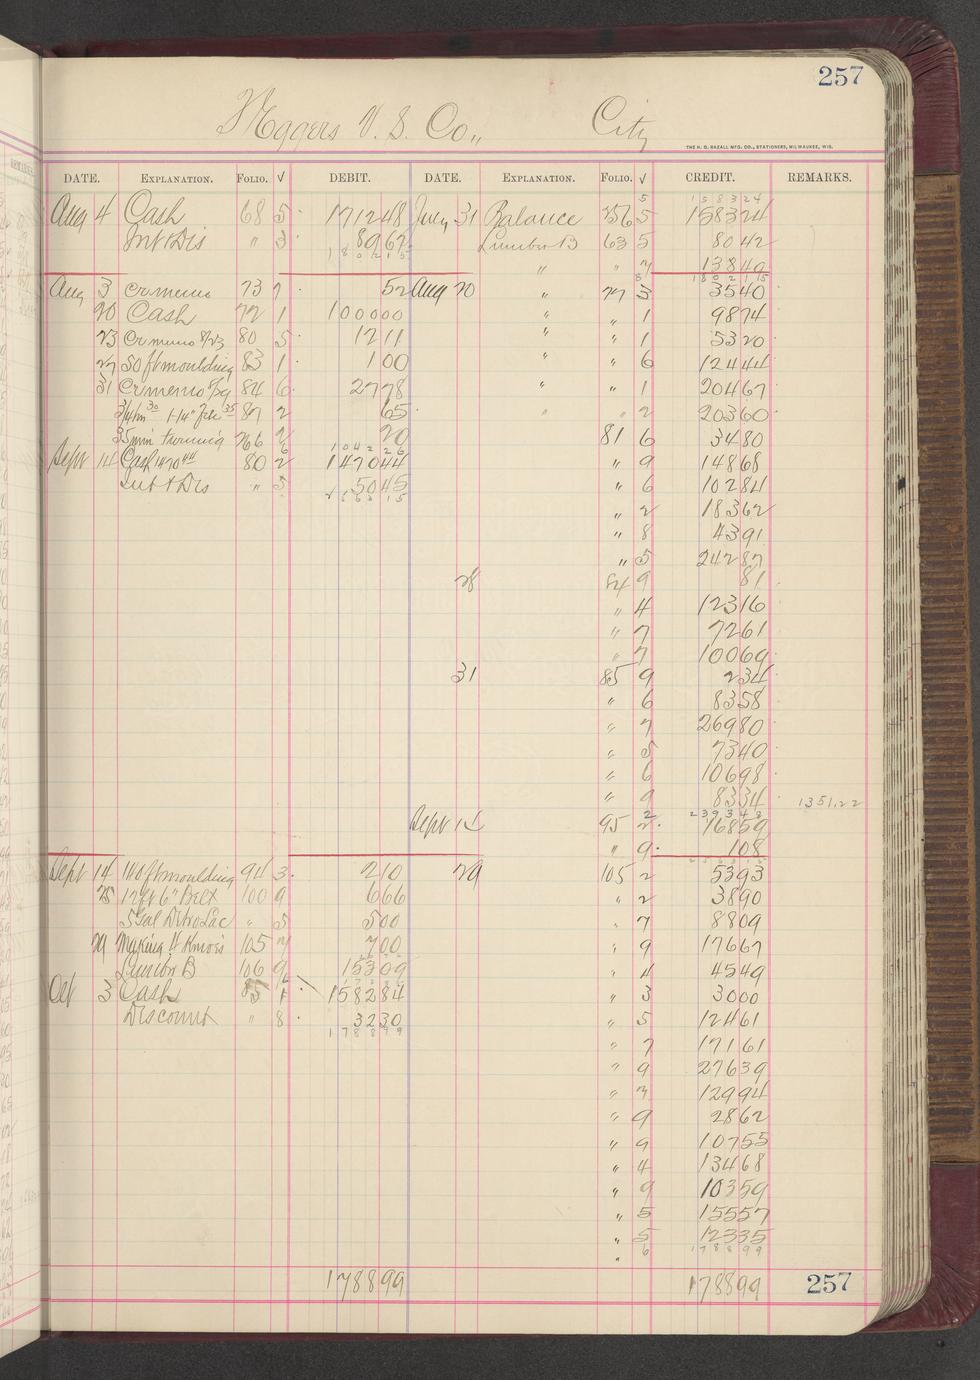 257
Heggers V. S. Co., City
THE H. G. RAZALL MFG. CO., STATIONERS, MILWAUKEE, WIS.
DATE. EXPLANATION. FOLIO. √ DEBIT. DATE. EXPLANATION. FOLIO. √ CREDIT. REMARKS.
5 158324
Aug 4 Cash 68 5 171248 July 31 Balance 256 5 158324
Int & Dis " 3 8967 Lumber B 63 5 8042
180215
" " 7 13849
8 180215
Aug 3 Cr memo 73 7 52 Aug 20 " 77 3 3540
20 Cash 72 1 100000 " " 1 9874
23 Cr memo 8/23 80 5 1211 " " 1 5320
27 50 ft moulding 83 1 100 " " 6 12444
31 Cr memo 84 6 2778 " " 1 20467
87 2 65 " " 2 20360
turning 266 2 20 81 6 3480
6 104226
Sept 14 Cash 1470 44 80 2 147044 " 9 14868
Int & Dis " 5 5045 " 6 10284
256315
" 2 18362
" 8 4391
" 5 24287
28 84 9 81
" 4 12316
" 7 7261
" 7 10069
31 85 9 234
" 6 8358
" 7 26980
" 5 7340
" 6 10698
" 9 8334 1351.22
2 239348
Sept 15 95 2 16859
" 9 108
256315
Sept 14 140 ft moulding 94 3 210 29 105 2 5393
25 12 ft 6" Belt 100 9 666 " 2 3890
5 Gal Nitro Lac " 5 500 " 7 8809
29 Making 105 7 700 " 9 17667
Lumber B 106 9 15309 " 4 4549
Oct 3 Cash 85 1 158284 " 3 3000
Discount " 8 3230 " 5 12461
178899
" 7 17161
" 9 27639
" 7 12994
" 9 2862
" 9 10755
" 4 13468
" 9 10359
" 5 15557
" 5 12335
" 6 178899
178899 178899 257